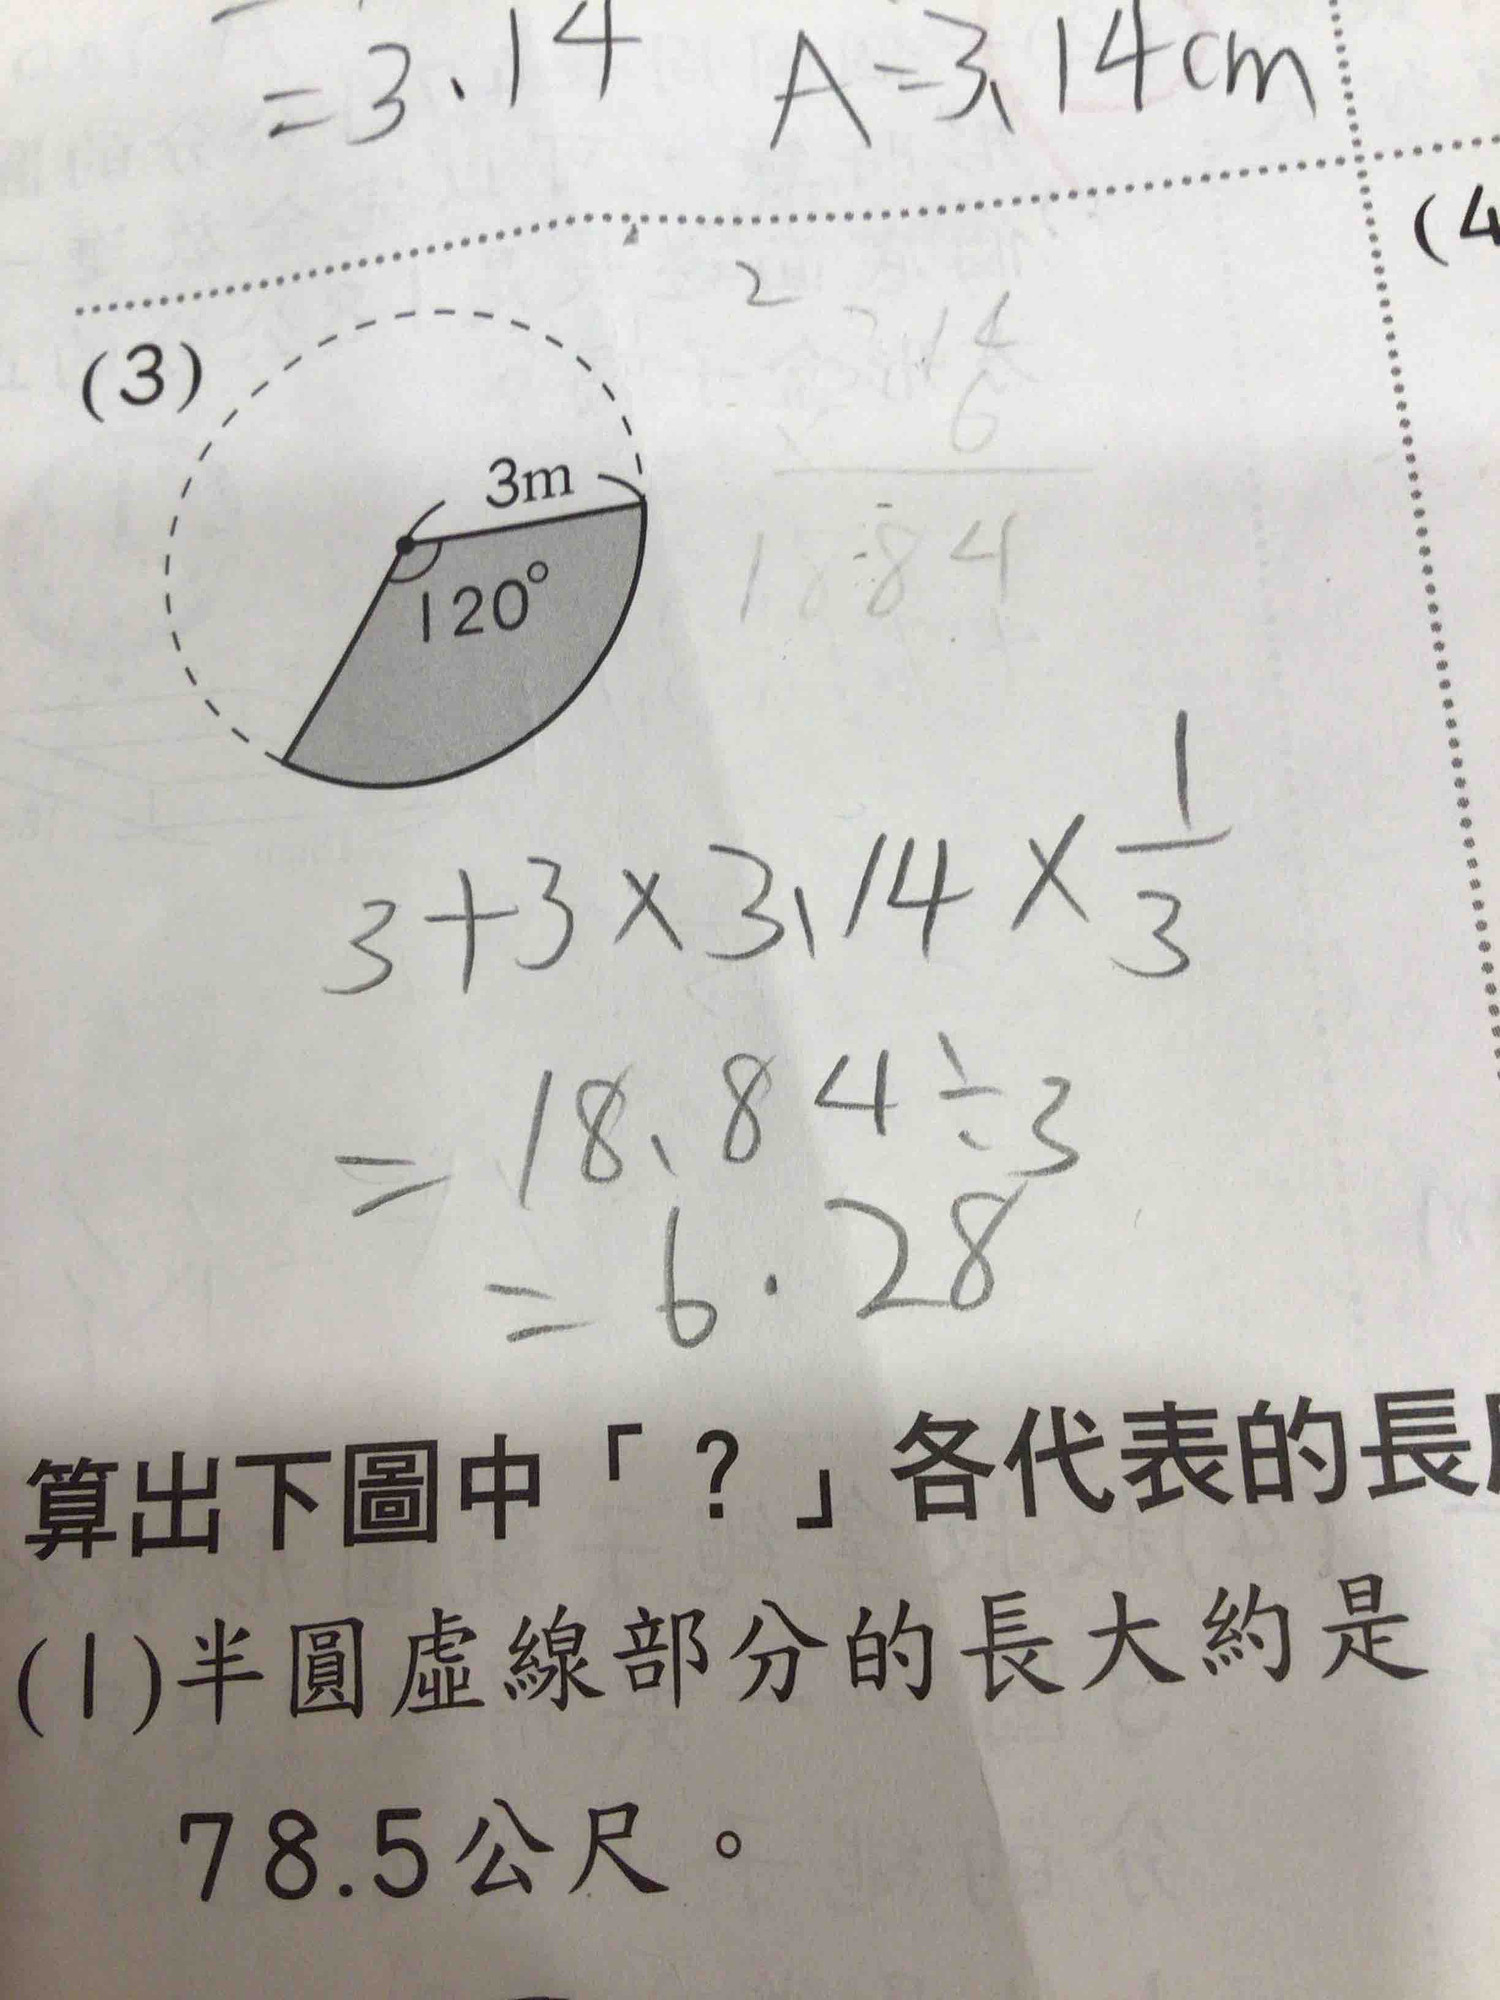 =3.14 A=3.14cm
(4
(3)
2
3.14
6
18.84
3m
120°
3+3×3.14×1/3
=18.84÷3
=6.28
算出下圖中「?」各代表的長
(1)半圓虛線部分的長大約是
78.5公尺。